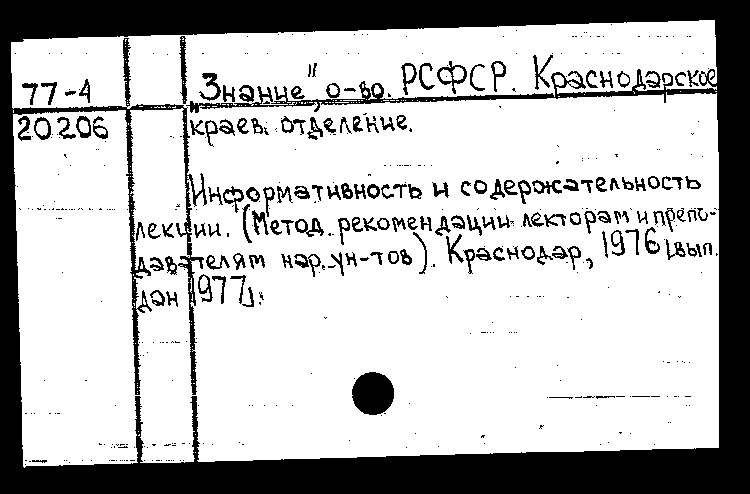 77-4 „Знание", о-во. РСФСР. Краснодарское
20206 краев. отделение.
Информативность и содержательность
лекции. (Метод. рекомендации лекторам и препо-
давателям нар. ун-тов). Краснодар, 1976 [вып.
дан 1977].